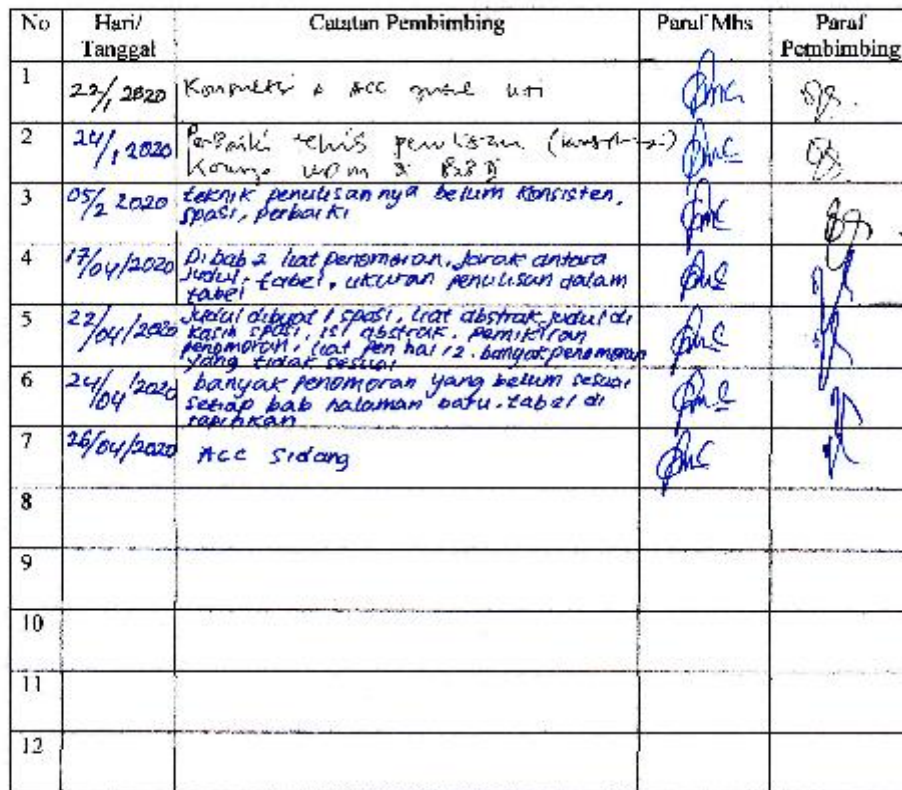 No Hari/ Catatan Pembimbing Paraf Mhs Paraf
Tanggal Pembimbing
1
22/1 2020 ACC
2 24/1 2020 Perbaiki penulisan
3 05/2 2020 teknik penulisannya belum konsisten,
spasi, perbaiki
4 17/04/2020 Di bab 2 liat penomoran, jarak antara
judul, tabel, ukuran penulisan dalam
tabel
5 22/04/2020 Judul dibuat 1 spasi, liat abstrak, judul di
kasih spasi, isi abstrak, pemikiran
penomoran, liat hal 12. banyak penomoran
yang tidak sesuai
6 24/04/2020 banyak penomoran yang belum sesuai
setiap bab halaman baru. tabel di
rapihkan
7 26/04/2020 ACC Sidang
8
9
10
11
12